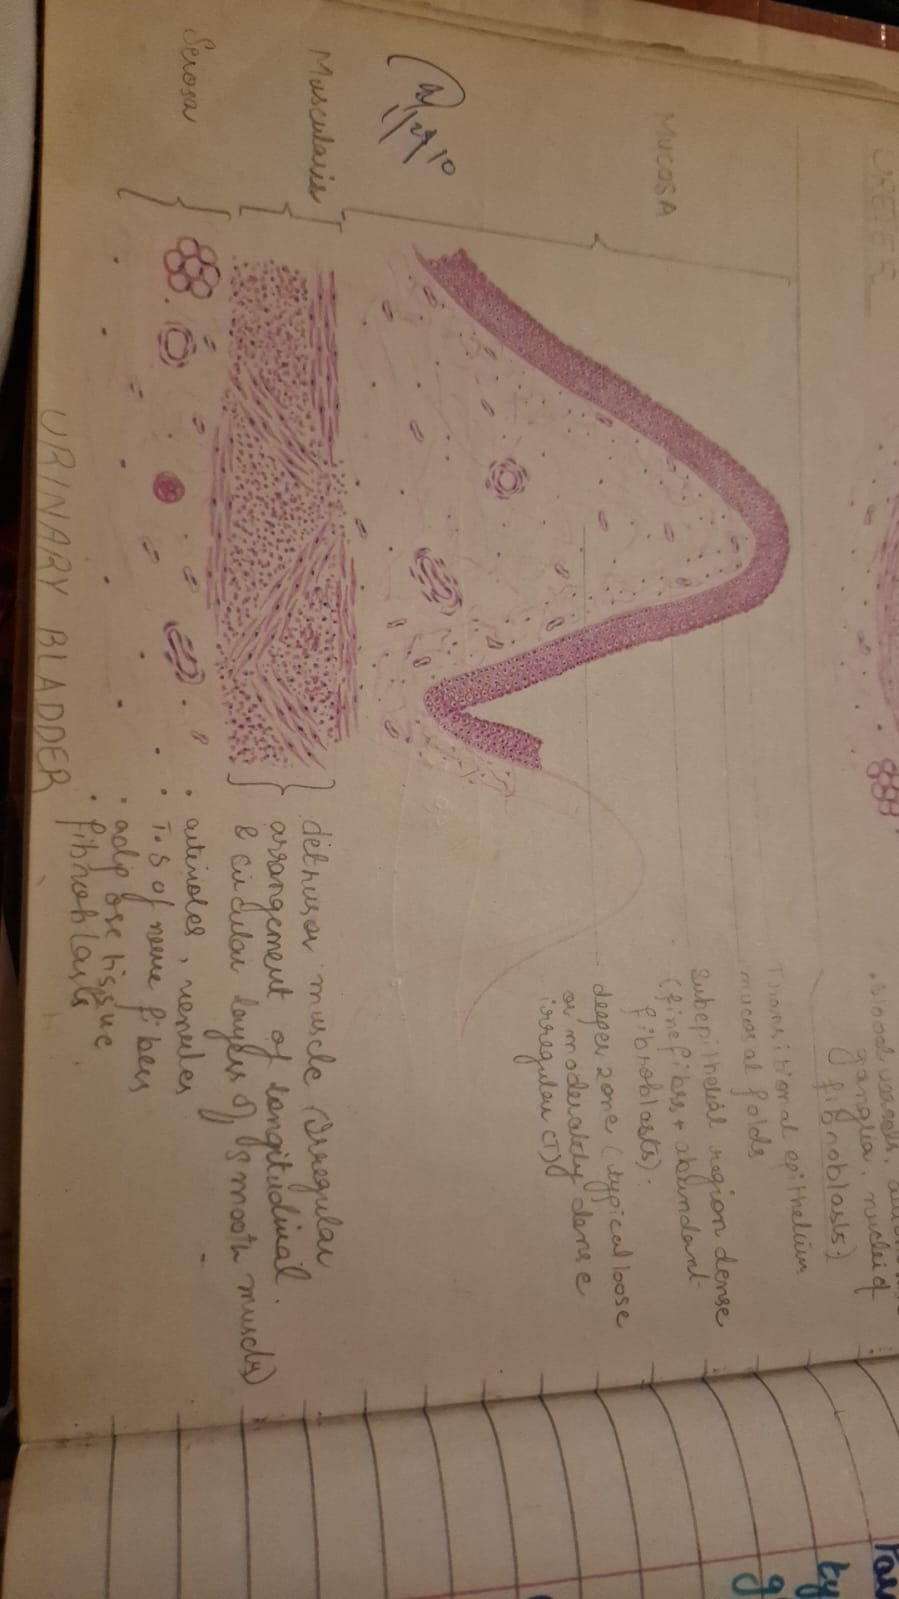 URETER
Blood vessels,
ganglia, nuclei of
fibroblasts)
MUCOSA
Transitional epithelium
mucosal folds
Subepithelial region dense
(fine fibers + abundant
fibroblasts)
deeper zone (typical loose
or moderately dense
irregular CT)
Muscularis
detrusor muscle (irregular
arrangement of longitudinal
& circular layers of smooth muscle)
Serosa
• arterioles, venules
• T.S of nerve fibers
• adipose tissue
• fibroblasts
URINARY BLADDER